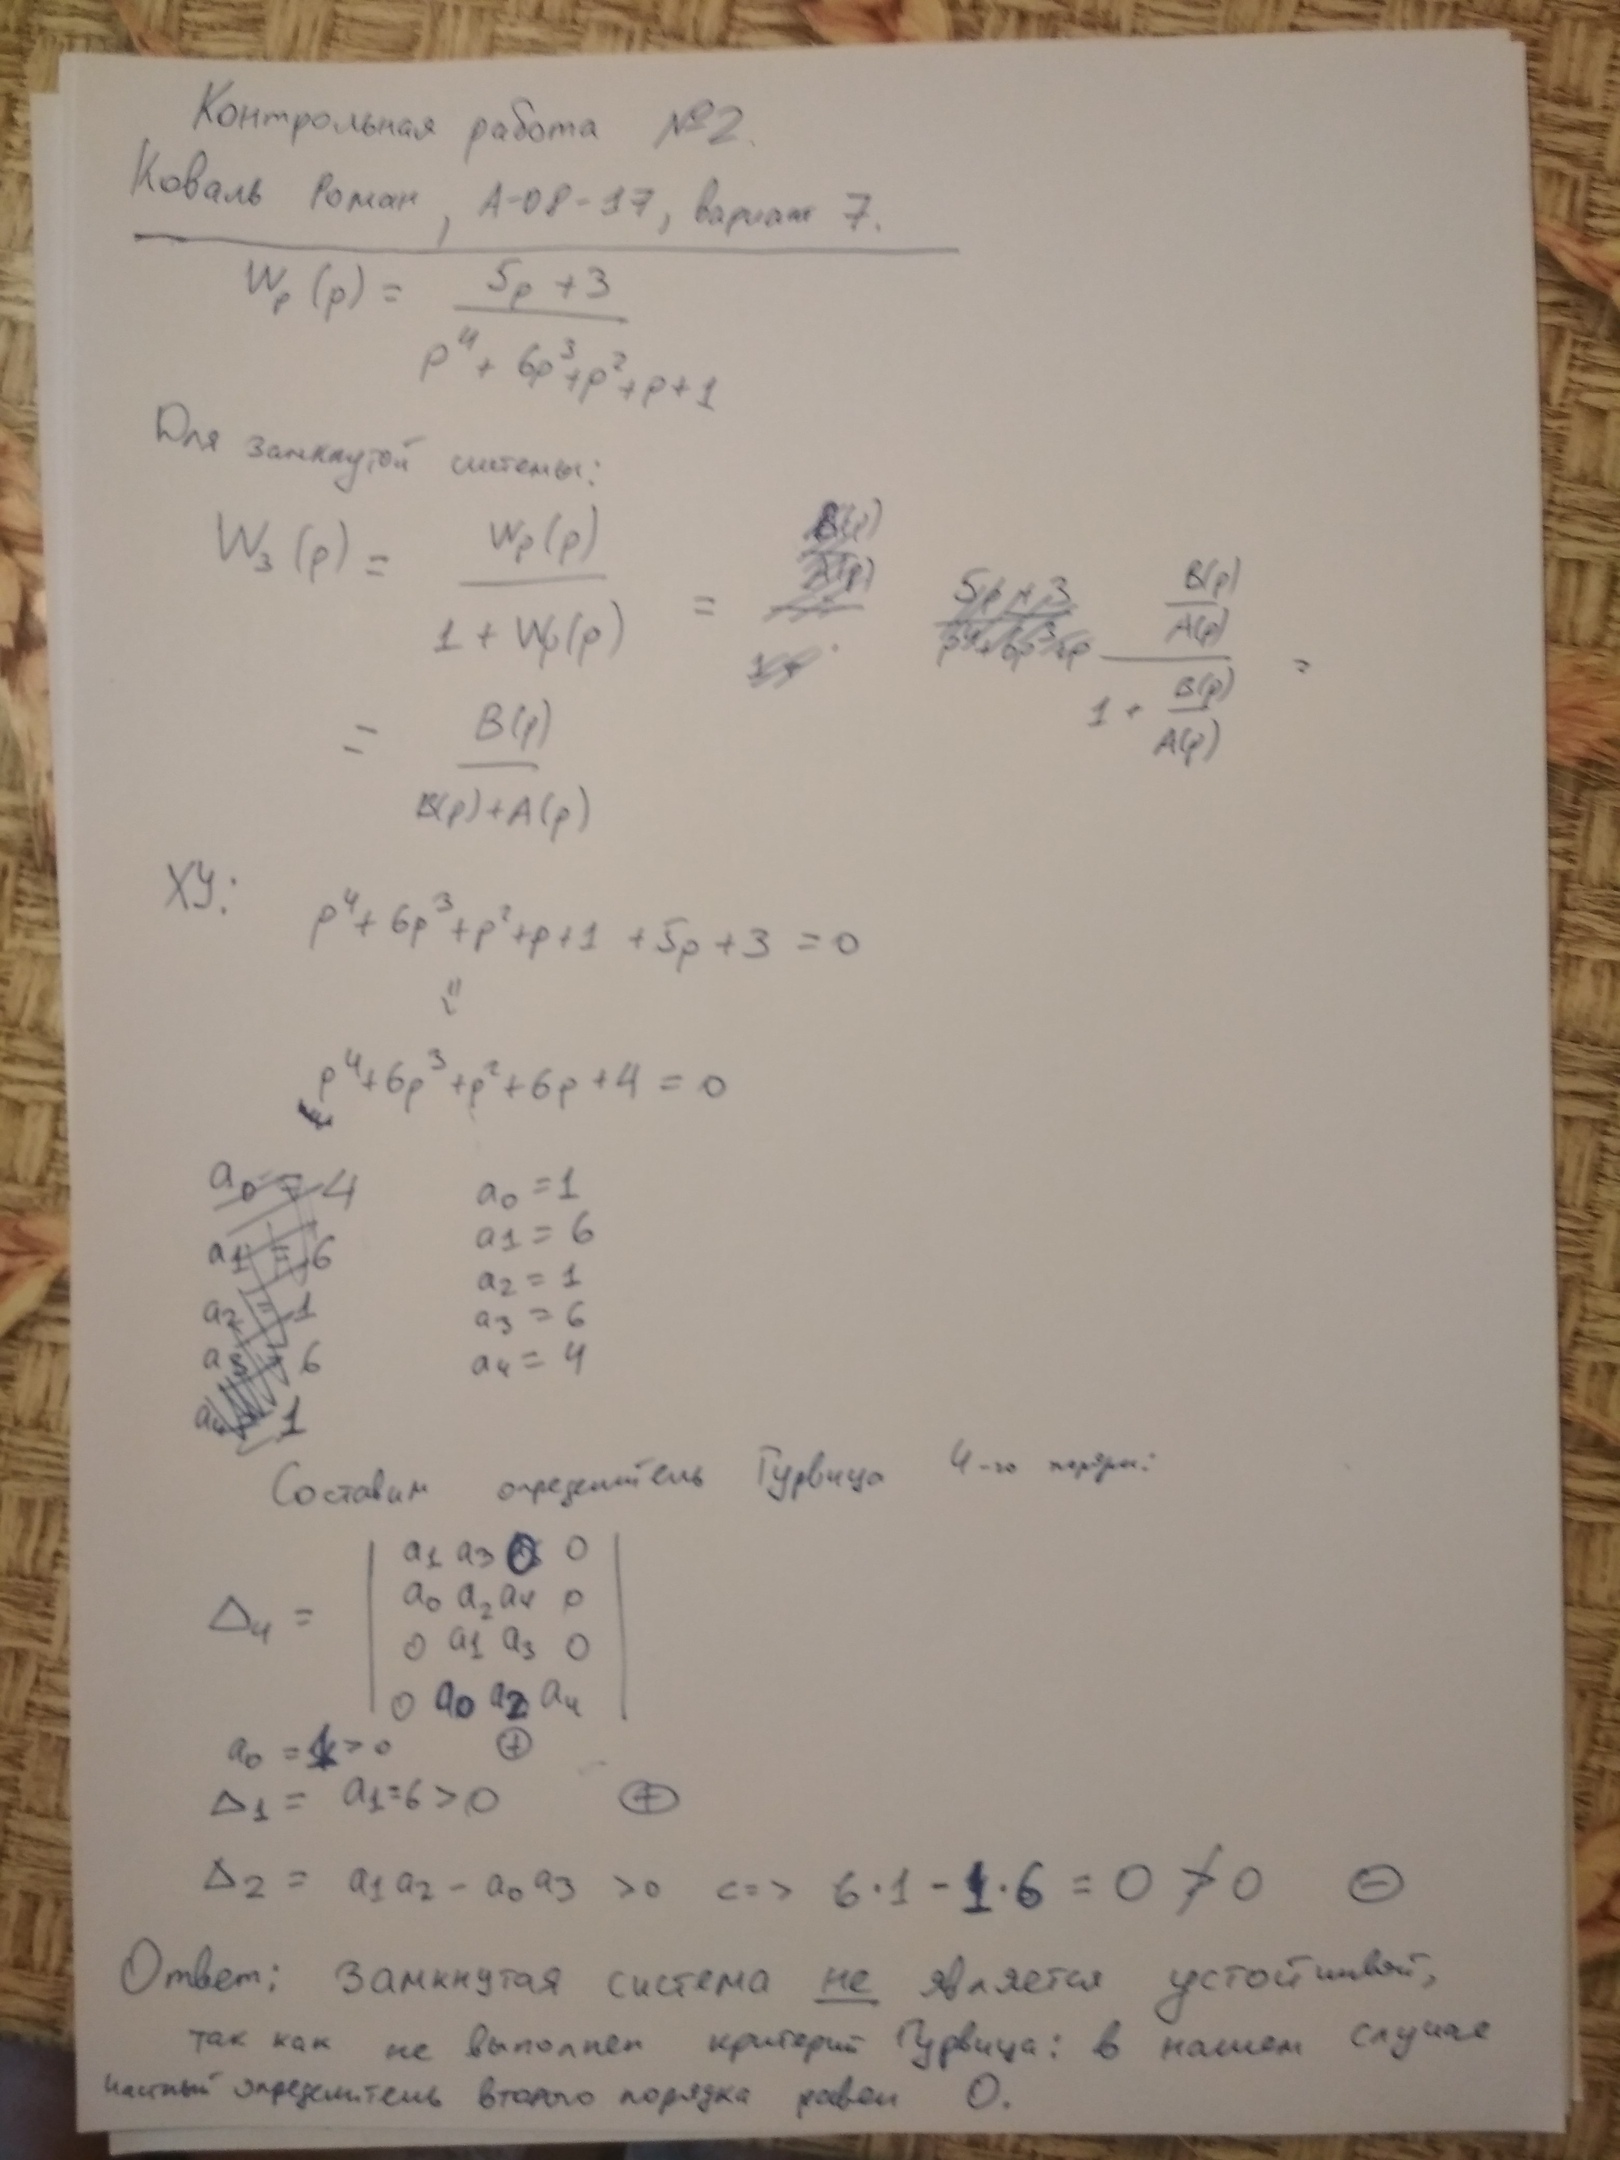 Контрольная работа №2.
Коваль Роман, А-08-17, вариант 7.
Wp(p) = (5p + 3) / (p⁴ + 6p³ + p² + p + 1)
Для замкнутой системы:
Wз(p) = Wp(p) / (1 + Wp(p)) = (B(p)/A(p)) / (1 + B(p)/A(p)) =
= B(p) / (B(p) + A(p))
ХУ:
p⁴ + 6p³ + p² + p + 1 + 5p + 3 = 0
p⁴ + 6p³ + p² + 6p + 4 = 0
a0 = 4 a0 = 1
a1 = 6 a1 = 6
a2 = 1 a2 = 1
a3 = 6 a3 = 6
a4 = 1 a4 = 4
Составим определитель Гурвица 4-го порядка:
a1 a3 0 0
a0 a2 a4 0
Δ4 =
0 a1 a3 0
0 a0 a2 a4
a0 = 1 > 0 ⊕
Δ1 = a1 = 6 > 0 ⊕
Δ2 = a1a2 - a0a3 > 0 <=> 6·1 - 1·6 = 0 ≯ 0 ⊖
Ответ: замкнутая система не является устойчивой,
так как не выполнен критерий Гурвица: в нашем случае
частный определитель второго порядка равен 0.